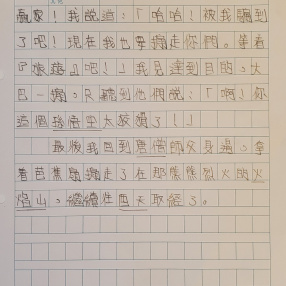 贏家！我說道：「哈哈！被我騙到
了吧！現在我也要搧走你們。等着
吧！」我見達到目的，大
巴一搧，只聽到他們說：「啊！你
這個孫悟空太狡猾了！」
最後我回到唐僧師父身邊，拿
着芭蕉扇搧走了在那熊熊烈火的火
焰山，繼續往西天取經了。